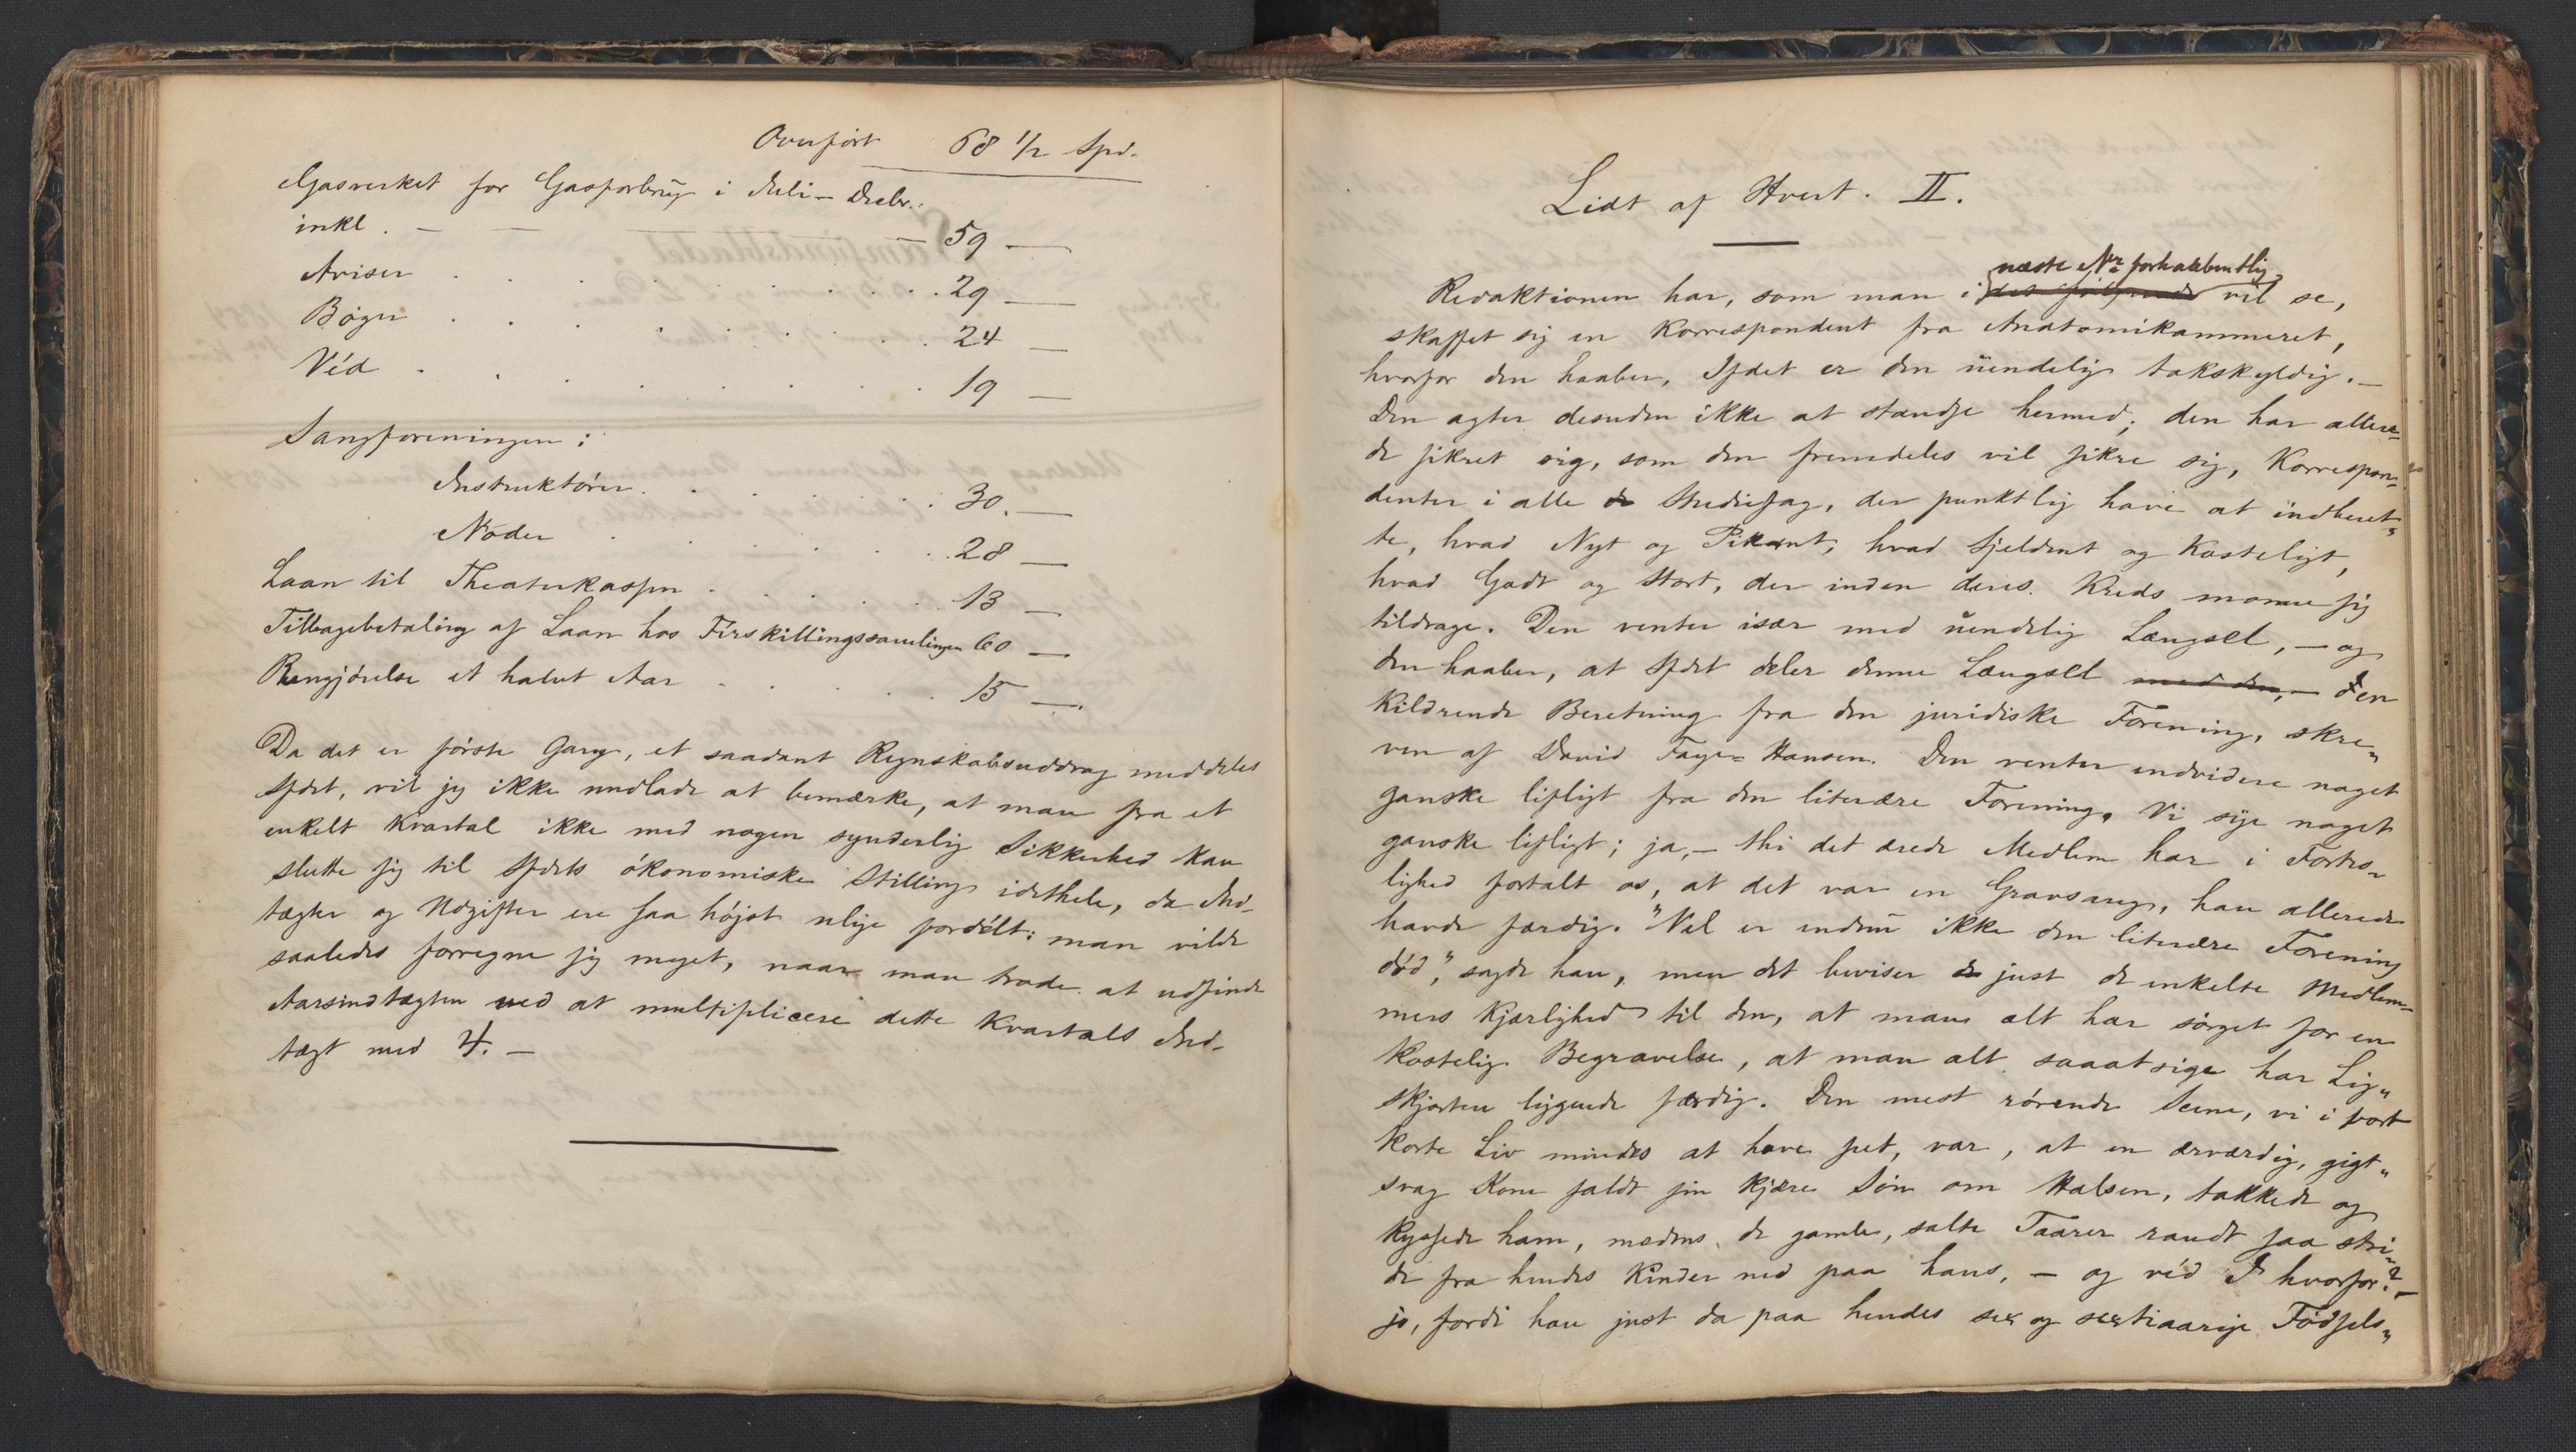 Overført 68 1/2 Spd.
Gasverket for Gasforbrug i Juli-Decbr.
inkl. — — 59 —
Aviser . . . . . . . 29 —
Bøger . . . . . . . 24 —
Véd . . . . . . . 19 —
Sangforeningen:
Instruktører . . . . . 30. —
Noder . . . . . . 28 —
Laan til Theaterkassen . . . . . 13 —
Tilbagebetaling af Laan hos Firskillingssamlingen 60 —
Rengjørelse et halvt Aar . . . . . 15 —.
Da det er første Gang, et saadant Regnskabsuddrag meddeles
Sfdet, vil jeg ikke undlade at bemærke, at man fra et
enkelt Kvartal ikke med nogen synderlig Sikkerhed kan
slutte sig til Sfdets økonomiske Stilling idethele, da Ind-
tægter og Udgifter ere saa højst ulige fordélt: man vilde
saaledes forregne sig meget, naar man trode at udfinde
Aarsindtægten ved at multiplicere dette Kvartals Ind-
tægt med 4. —
Lidt af Hvert. II.
næste Nr. forhaabentlig
Redaktionen har, som man i det følgende vil se,
skaffet sig en Korrespondent fra Anatomikammeret,
hvorfor den haaber, Sfdet er den uendelig takskyldig. —
Den agter desuden ikke at standse hermed; den har allere-
de sikret sig, som den fremdeles vil sikre sig, Korrespon-
denter i alle de Studiefag, der punktlig have at indberet-
te, hvad Nyt og Pikant, hvad Sjeldent og Kosteligt,
hvad Godt og Stort, der inden deres Kreds monne sig
tildrage. Den venter især med uendelig Længsel, — og
den haaber, at Sfdet deler denne Længsel med den, — den
kildrende Beretning fra den juridiske Forening, skre-
ven af David Faye-Hansen. Den venter endvidere noget
ganske lifligt fra den literære Forening. Vi sige noget
ganske lifligt; ja, — thi det ærede Medlem har i Fortro-
lighed fortalt os, at det var en Gravsang, han allerede
havde færdig. "Vel er endnu ikke den literære Forening
død," sagde han, men det beviser just de enkelte Medlem-
mers Kjærlighed til den, at man alt har sørget for en
kostelig Begravelse, at man alt saaatsige har Lig-
skjorten liggende færdig. Den mest rørende Scene, vi i vort
korte Liv mindes at have set, var, at en ærværdig, gigt-
svag Kone faldt sin kjære Søn om Halsen, takkede og
kyssede ham, medens de gamle, salte Taarer randt saa stri-
de fra hendes Kinder ned paa hans, — og véd I hvorfor? —
jo, fordi han just da paa hendes sex og sextiaarige Fødsels-